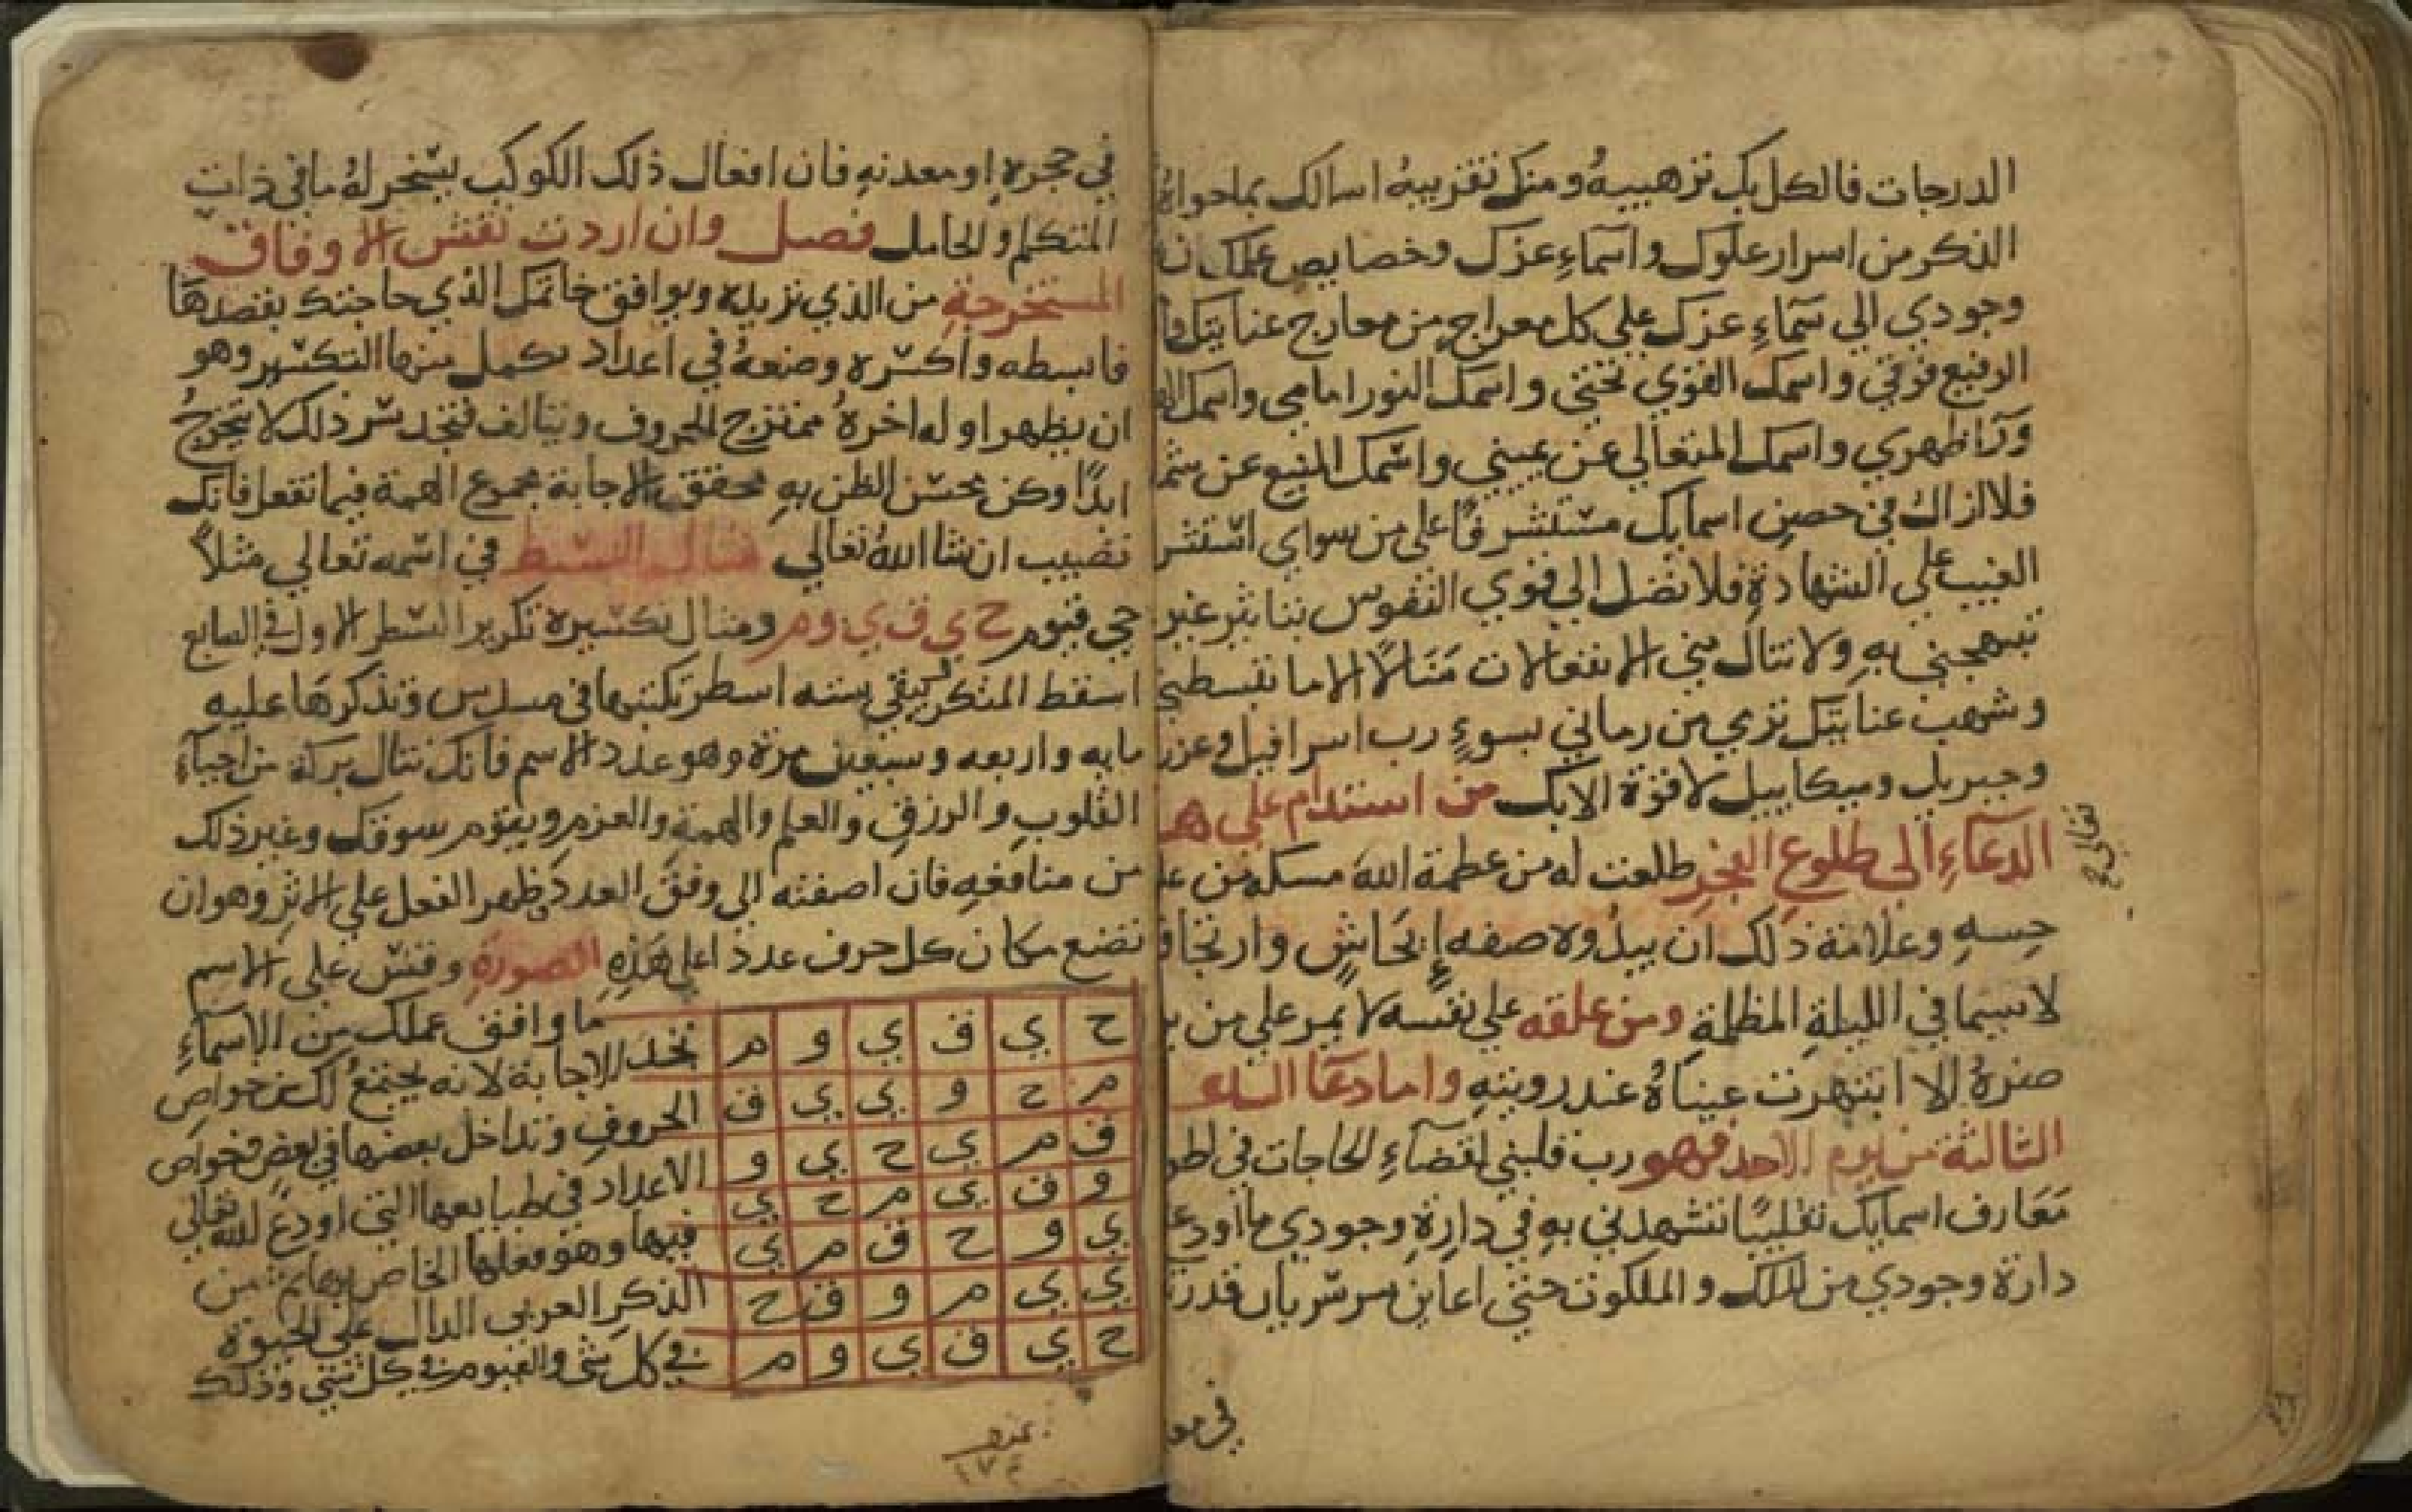 الدرجات فالكل بك ترهيبه ومنك تقريبه اسالك بما حواه
الذكر من اسرار علوك واسماء عزك وخصايص عملك ان
وجودي الي سماء عزك علي كل معراج من معارج عنايتك
الرفيع فوقي واسمك القوي تحتي واسمك النور امامي واسمك
ورا ظهري واسمك المتعالي عن يميني واسمك المنيع عن شما
فلا ازال في حصن اسمايك مستشرفا على من سواي استشر
الغيب علي الشهادة فلا تصل الي قوي النفوس بتاثير غير
تبهجني به ولا تنال مني الانفعالات منالا الا ما تبسطني
وشهب عنايتك ترمي من رماني بسوء رب اسرافيل وعزر
وجبريل وميكاييل لا قوة الا بك من استدام علي هـ
الدعاء الي طلوع الفجر طلعت له من عظمة الله
تعالي صح
حسه وعلامة ذلك ان يبدو لا صفه
لا سيما في الليلة المظلمة ومن علقه علي نفسه لا يمر علي من
الا انبهرت عيناه عند رويته واما دعا السا
الثالثة من يوم الاحد فهو رب قلبني لقضاء الحاجات في
معارف اسمايك تقليبا تشهدني به في دارة وجودي ما اودع
دارة وجودي من الملك والملكوت حتي اعاين سر سريان قدر
في مو
في حجره او معدنه فان افعال ذلك الكوكب يتسخر له ما في ذات
المتكلم والحامل فصل وان اردت نقش الاوفاق
المستخرجة من الذي تريده ويوافق خاتمك الذي حاجتك بقصدها
فابسطه واكسره وضعه في اعداد يكمل منها التكسير وهو
ان يظهر اوله اخره ممتزج الحروف وتتالف فتجد سر ذلك لا يخرج
ابدا وكن بحسن الظن به محقق الاجابة مجموع الهمة فيما تفعل فانك
تصيب ان شا الله تعالي مثال البسط في اسمه تعالي مثلا
حي قيوم ح ي ق ي و م ومثال تكسيره تكرير السطر الاول في السابع
اسقط المتكرر يبقي سته اسطر تكتبها في مسدس وتذكرها عليه
مايه واربعه وسبعين مرة وهو عدد الاسم فانك تنال بركة من احياء
القلوب والرزق والعلم والهمة والعزم ويقوم سوقك وغير ذلك
من منافعه فان اضفته الي وفق العدد ظهر الفعل علي الاثر وهو ان
تضع مكان كل حرف عددا علي هذه الصورة وقس علي الاسم
ما وافق عملك من الاسماء
تجد الاجابة لانه يجتمع لك خواص
الحروف وتداخل بعضها في بعض وخواص
الاعداد في طبايعها التي اودع الله تعالي
فيها وهو فعلها الخاص بها من
الذكر العربي الدال علي الحيوة
في كل شي والقيوم في كل شي وذلك
ح ي ق ي و م
م ح و ي ي ق
ق م ي ح ي و
و ق ي م ح ي
ي و ح ق م ي
ي ي م و ق ح
ح ي ق ي و م
١٧٤